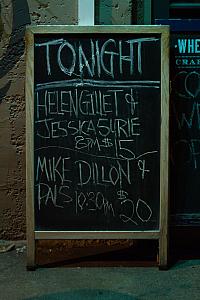 TONIGHT
HELEN GILLET &
JESSICA SURIE
8PM $15
MIKE DILLON &
PALS 10:30PM $20
WHE
CRA